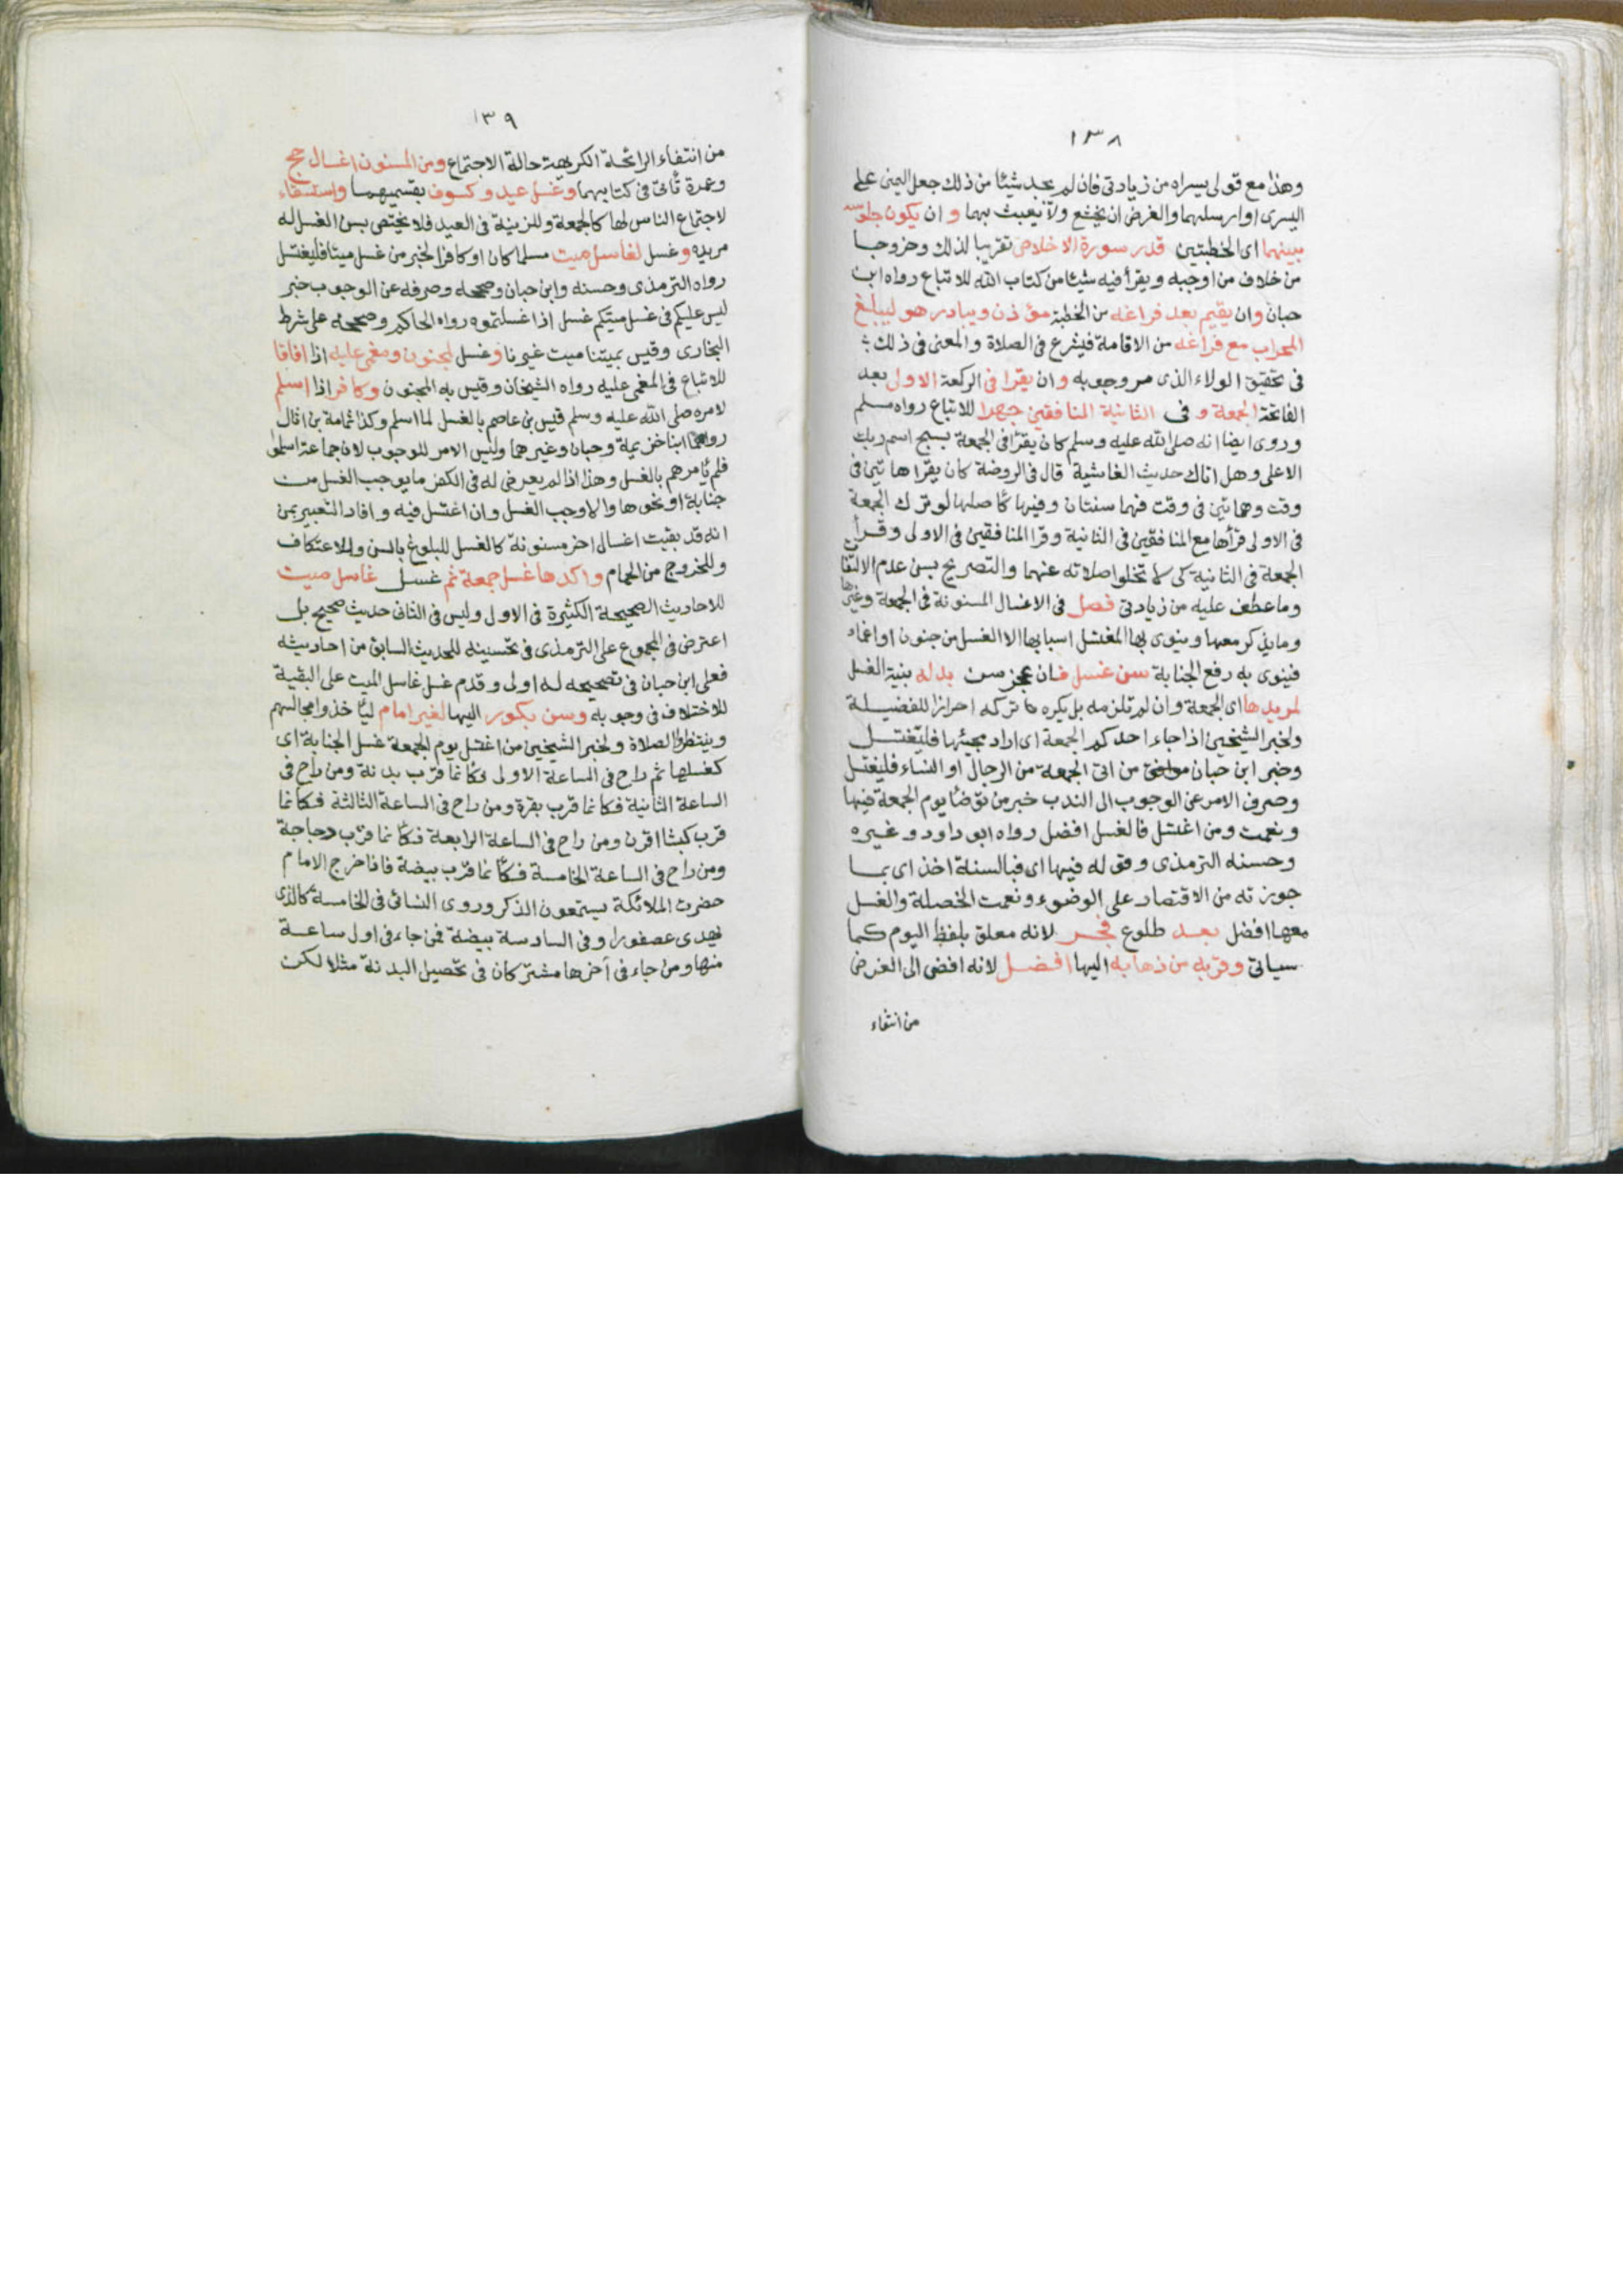 ١٣٨
وهذا مع قولى يسراه من زيادتى فان لم يجد شيئا من ذلك جعل اليمنى على
اليسرى او ارسلهما والغرض ان يخشع ولا يعبث بهما و ان يكون جلوسه
بينهما اى الخطبتين قدر سورة الاخلاص تقريبا لذلك وخروجا
من خلاف من اوجبه ويقرأ فيه شيئا من كتاب الله للاتباع رواه ابن
حبان وان يقيم بعد فراغه من الخطبة مؤذن ويبادر هو ليبلغ
المحراب مع فراغه من الاقامة فيشرع فى الصلاة والمعنى فى ذلك
فى تحقيق الولاء الذى مر وجوبه و ان يقرا فى الركعة الاولى بعد
الفاتحة الجمعة و فى الثانية المنافقين جهرا للاتباع رواه مسلم
وروى ايضا انه صلى الله عليه وسلم كان يقرأ فى الجمعة بسبح اسم ربك
الاعلى وهل اتاك حديث الغاشية قال فى الروضة كان يقرا هاتين فى
وقت وهاتين فى وقت فهما سنتان وفيها كاصلها لو ترك الجمعة
فى الاولى قرأها مع المنافقين فى الثانية وقرا المنافقين فى الاولى وقرأ
الجمعة فى الثانية كى لا تخلوا صلاته عنهما والتصريح بسن عدم الالتفات
وما عطف عليه من زيادتى فصل فى الاغسال المسنونة فى الجمعة وغيرها
وما يذكر معها وينوى بها المغتسل اسبابها الا الغسل من جنون او اغماء
فينوى به رفع الجنابة سن غسل فان عجز سن بدله بنية الغسل
لمريدها اى الجمعة وان لم تلزمه بل يكره تركه احرازا للفضيلة
ولخبر الشيخين اذا جاء احدكم الجمعة اى اراد مجيئها فليغتسل
وخبر ابن حبان من اتى الجمعة من الرجال او النساء فليغتسل
وصرف الامر عن الوجوب الى الندب خبر من توضأ يوم الجمعة فبها
ونعمت ومن اغتسل فالغسل افضل رواه ابو داود وغيره
وحسنه الترمذى وقوله فبها اى فبالسنة اخذ اى بما
جوزته من الاقتصار على الوضوء ونعمت الخصلة والغسل
معها افضل بعد طلوع فجر لانه معلق بلفظ اليوم كما
سياتى وقربه من ذهابه اليها افضل لانه افضى الى الغرض
من انتفاء
١٣٩
من انتفاء الرائحة الكريهة حالة الاجتماع ومن المسنون اغسال حج
وعمرة تأتى فى كتابيهما وغسل عيد وكسوف بقسميهما واستسقاء
لاجتماع الناس لها كالجمعة وللزينة فى العيد فلا يختص بسن الغسل له
مريده و غسل لغاسل ميت مسلما كان او كافرا لخبر من غسل ميتا فليغتسل
رواه الترمذى وحسنه وابن حبان وصححه وصرفه عن الوجوب خبر
ليس عليكم فى غسل ميتكم غسل اذا غسلتموه رواه الحاكم وصححه على شرط
البخارى وقيس بميتنا ميت غيرنا و غسل لمجنون ومغمى عليه اذا افاقا
للاتباع فى المغمى عليه رواه الشيخان وقيس به المجنون و كافر اذا اسلم
لامره صلى الله عليه وسلم قيس بن عاصم بالغسل لما اسلم وكذا ثمامة بن اثال
رواهما ابنا خزيمة وحبان وغيرهما وليس الامر للوجوب لان جماعة اسلموا
فلم يأمرهم بالغسل وهذا اذا لم يعرض له فى الكفر ما يوجب الغسل من
جنابة او نحوها والا وجب الغسل وان اغتسل فيه وافاد التعبير بمن
انه قد بقيت اغسال اخر مسنونة كالغسل للبلوغ بالسن وللاعتكاف
وللخروج من الحمام واكدها غسل جمعة ثم غسل غاسل ميت
للاحاديث الصحيحة الكثيرة فى الاول وليس فى الثانى حديث صحيح بل
اعترض فى المجموع على الترمذى فى تحسينه للحديث السابق من احاديثه
فعلى ابن حبان فى تصحيحه له اولى وقدم غسل غاسل الميت على البقية
للاختلاف فى وجوبه وسن بكور اليها لغير امام ليأخذوا مجالسهم
وينتظروا الصلاة ولخبر الشيخين من اغتسل يوم الجمعة غسل الجنابة اى
كغسلها ثم راح فى الساعة الاولى فكأنما قرب بدنة ومن راح فى
الساعة الثانية فكانما قرب بقرة ومن راح فى الساعة الثالثة فكانما
قرب كبشا اقرن ومن راح فى الساعة الرابعة فكأنما قرب دجاجة
ومن راح فى الساعة الخامسة فكأنما قرب بيضة فاذا خرج الامام
حضرت الملائكة يستمعون الذكر وروى النسائى فى الخامسة كالذى
يهدى عصفورا وفى السادسة بيضة فمن جاء فى اول ساعة
منها ومن جاء فى آخرها مشتركان فى تحصيل البدنة مثلا لكن